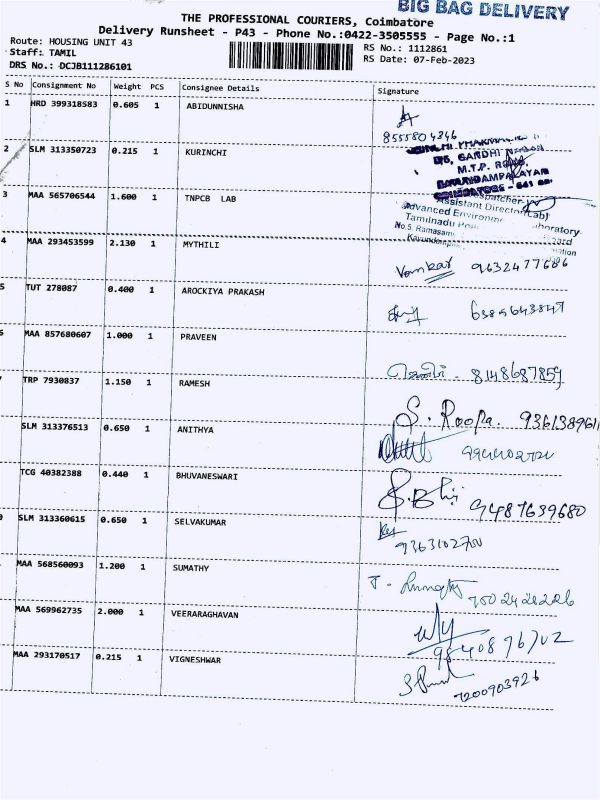 BIG BAG DELIVERY
THE PROFESSIONAL COURIERS, Coimbatore
Delivery Runsheet - P43 - Phone No.:0422-3505555 - Page No.:1
Route: HOUSING UNIT 43
RS No.: 1112861
Staff: TAMIL
RS Date: 07-Feb-2023
DRS No.: DCJB111286101
S No Consignment No Weight PCS Consignee Details Signature
1 HRD 399318583 0.605 1 ABIDUNNISHA
8555804346
2 SLM 313350723 0.215 1 KURINCHI
GANDHI
M.T.P. ROAD
3 MAA 565706544 1.600 1 TNPCB LAB
Assistant Director(Lab)
Advanced Environ boratory
Tamilnadu
No.5, Ramasam
4 MAA 293453599 2.130 1 MYTHILI
Venkat 9632477686
5 TUT 278087 0.400 1 AROCKIYA PRAKASH
MAA 857680607 1.000 1 PRAVEEN
8148687859
TRP 7930837 1.150 1 RAMESH
S. Roopa. 936138961
SLM 313376513 0.650 1 ANITHYA
TCG 40382388 0.440 1 BHUVANESWARI
9487639680
SLM 313360615 0.650 1 SELVAKUMAR
9363102700
MAA 568560093 1.200 1 SUMATHY
MAA 569962735 2.000 1 VEERARAGHAVAN
MAA 293170517 0.215 1 VIGNESHWAR
7200903926